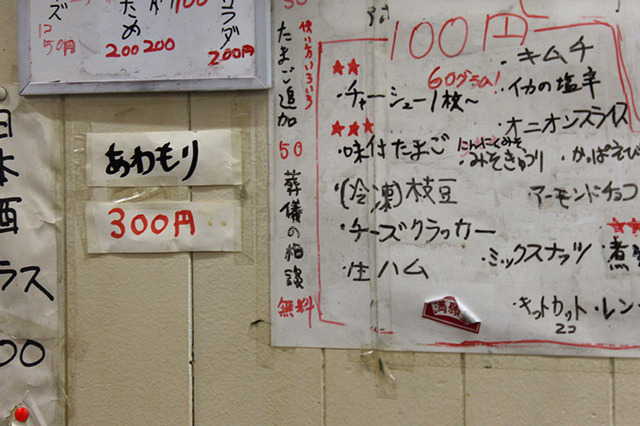 ズ
12
50円
ため
200 200
100
ラダ
200円
日本酒
ラス
00
あわもり
300円
使い方いろいろ
たまご追加
50
葬儀の相談
無料
100円
★★
60グラム!
・チャーシュー1枚〜
★★★
・味付たまご
・(冷凍)枝豆
・チーズクラッカー
・生ハム
・キムチ
・イカの塩辛
・オニオンスライス
にんにくみそ
・みそきゅうり
・かっぱえび
アーモンドチョコ
★★
・ミックスナッツ
・煮
・キットカット
2コ
・レン